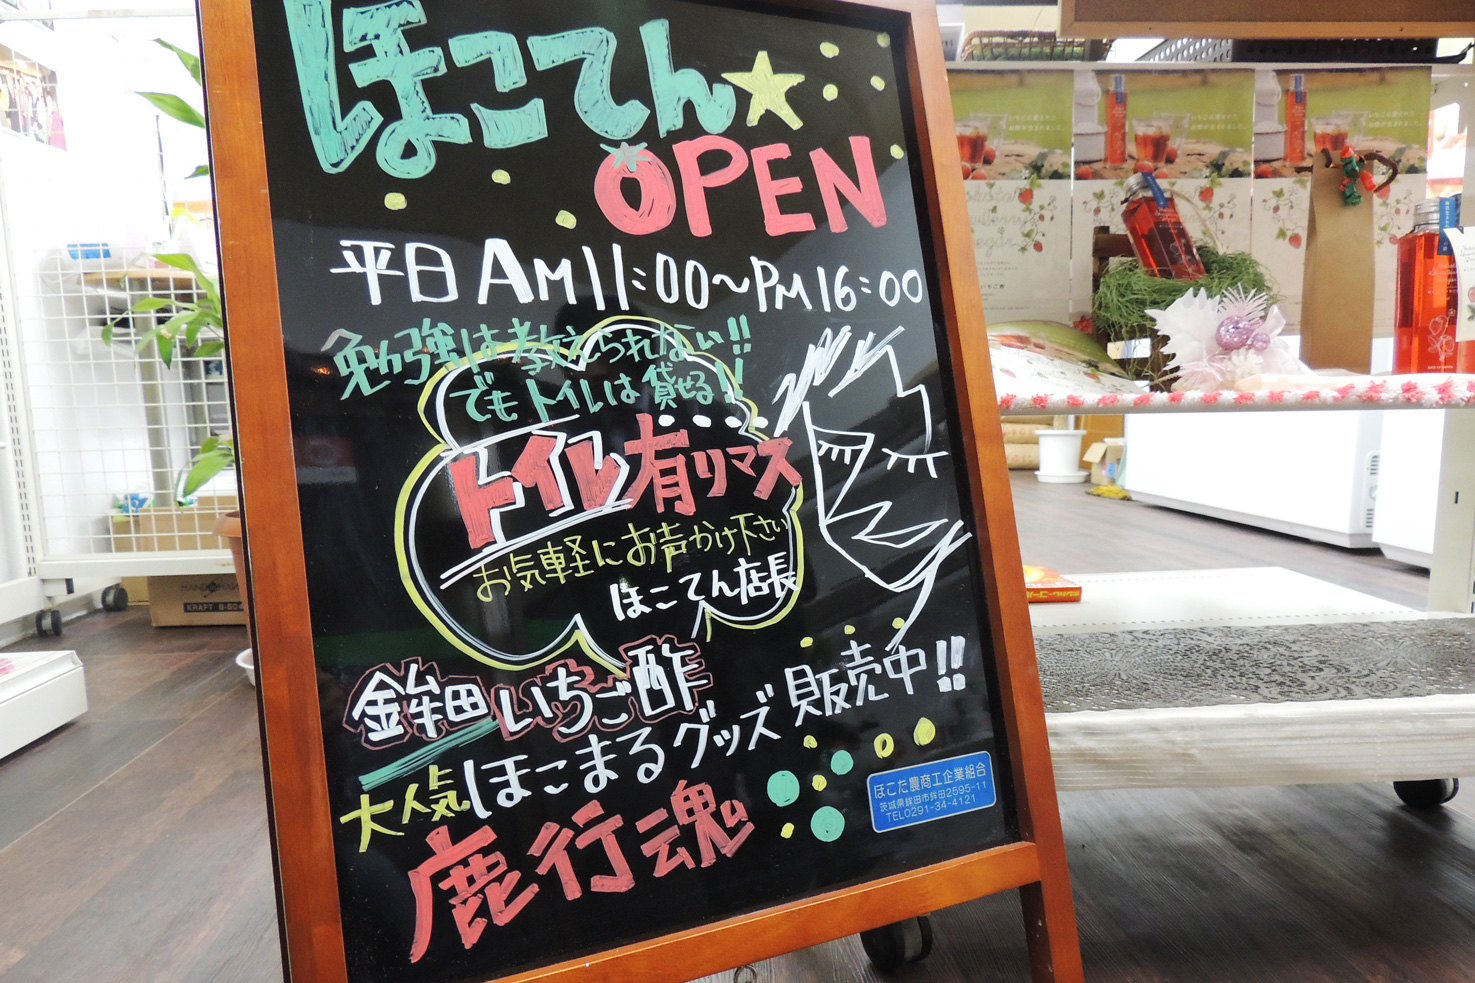 ほこてん★
OPEN
平日 AM11:00～PM16:00
勉強は教えられない!!
でもトイレは貸せる!!
トイレ有リマス
お気軽にお声かけ下さい
ほこてん店長
鉾田いちご酢
大人気ほこまるグッズ 販売中!!
鹿行魂
ほこた農商工企業組合
茨城県鉾田市鉾田2595-11
TEL0291-34-4121
KRAFT